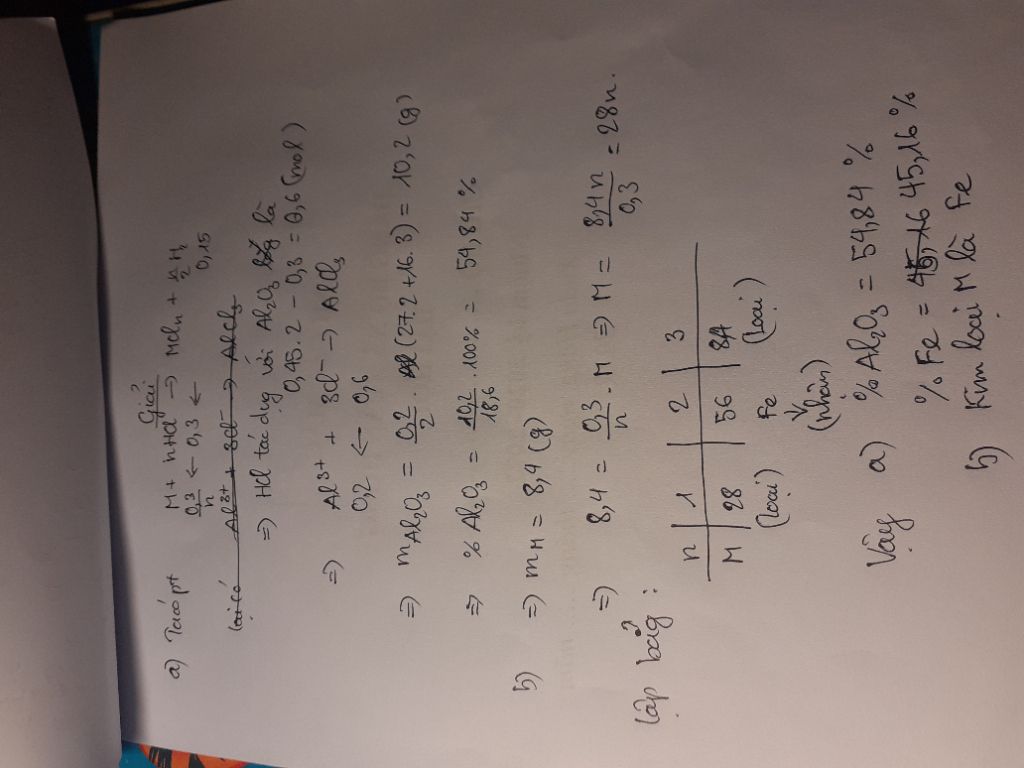 Giải
a) Ta có pt M + nHCl → MCln + n/2 H2
0,3/n ← 0,3 ← 0,15
Lại có Al3+ + 3Cl- → AlCl3
⇒ HCl tác dụg với Al2O3 là
0,45.2 - 0,3 = 0,6 (mol)
⇒ Al3+ + 3Cl- → AlCl3
0,2 ← 0,6
⇒ mAl2O3 = 0,2/2 . (27.2+16.3) = 10,2 (g)
⇒ % Al2O3 = 10,2/18,6 . 100% = 54,84 %
b) ⇒ mM = 8,4 (g)
⇒ 8,4 = 0,3/n . M ⇒ M = 8,4n/0,3 = 28n.
Lập bảg :
n | 1 | 2 | 3
M | 28 | 56 | 84
(loại) Fe (loại)
(nhận)
Vậy a) % Al2O3 = 54,84 %
% Fe = 45,16 45,16 %
b) Kim loại M là Fe